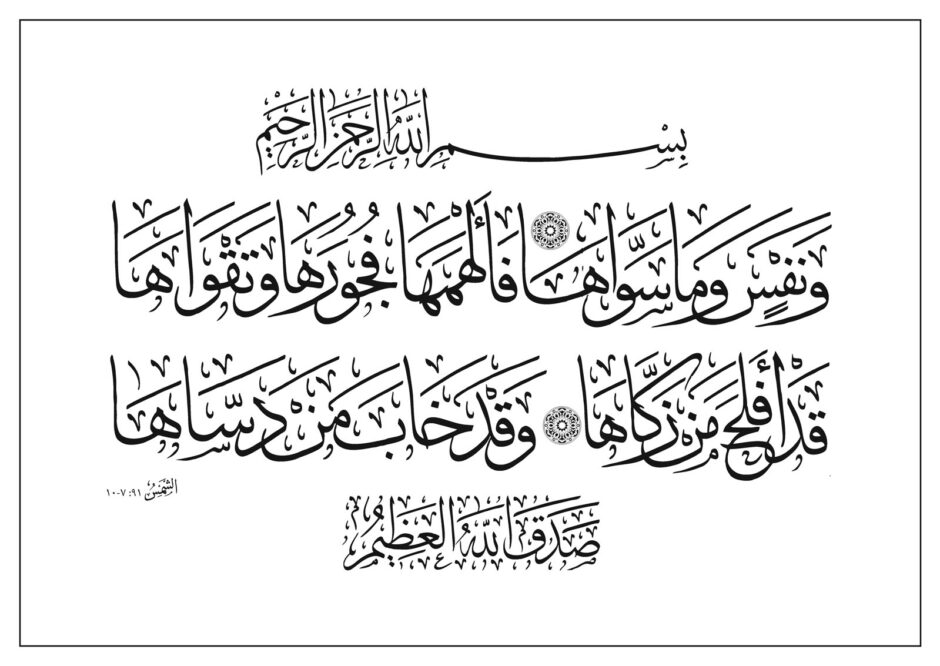 بِسْمِ اللهِ الرَّحْمٰنِ الرَّحِيْمِ
وَنَفْسٍ وَمَا سَوَّاهَا فَأَلْهَمَهَا فُجُورَهَا وَتَقْوَاهَا
قَدْ أَفْلَحَ مَنْ زَكَّاهَا وَقَدْ خَابَ مَنْ دَسَّاهَا
الشَّمْسُ ٩١: ٧-١٠
صَدَقَ اللهُ الْعَظِيْمُ